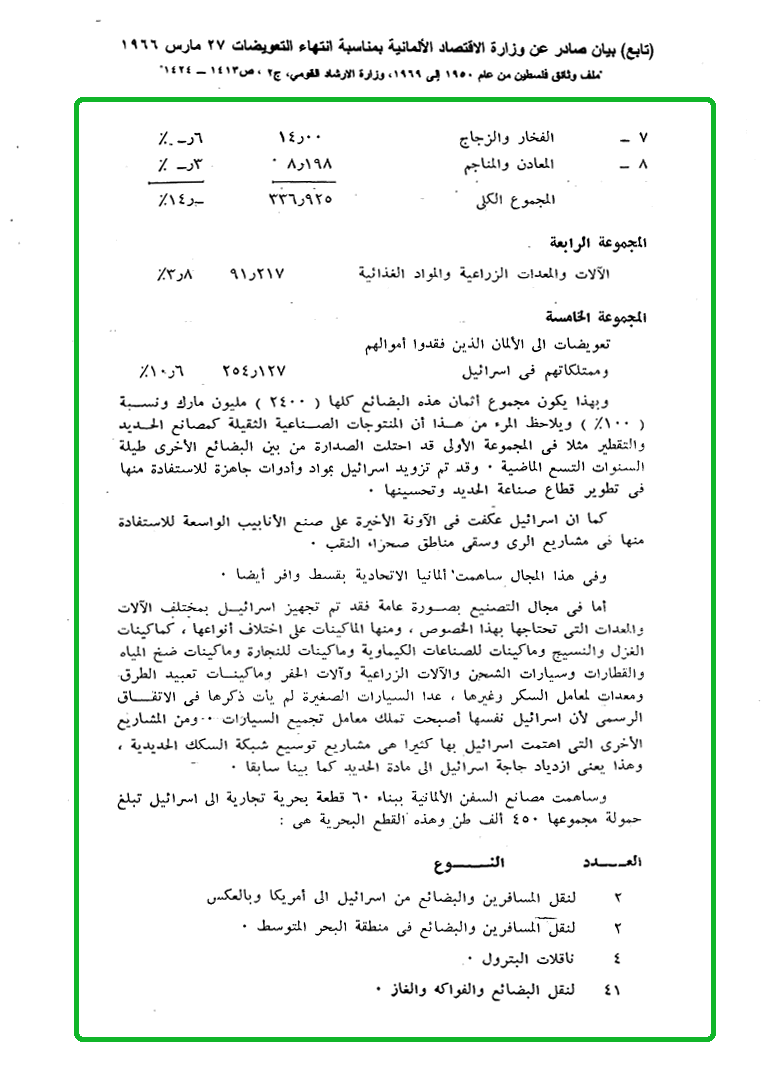 (تابع) بيان صادر عن وزارة الاقتصاد الألمانية بمناسبة انتهاء التعويضات ٢٧ مارس ١٩٦٦
"ملف وثائق فلسطين من عام ١٩٥٠ إلى ١٩٦٩، وزارة الارشاد القومي، ج٢ ، ص١٤١٣ – ١٤٢٤"
٧ – الفخار والزجاج ١٤ر٠٠ ٦ر–٪
٨ – المعادن والمناجم ٨ر١٩٨ ٣ر– ٪
المجموع الكلى ٣٣٦ر٩٢٥ –ر١٤٪
المجموعة الرابعة
الآلات والمعدات الزراعية والمواد الغذائية ٩١ر٢١٧ ٣ر٨٪
المجموعة الخامسة
تعويضات الى الألمان الذين فقدوا أموالهم
وممتلكاتهم فى اسرائيل ٢٥٤ر١٢٧ ١٠ر٦٪
وبهذا يكون مجموع أثمان هذه البضائع كلها ( ٢٤٠٠ ) مليون مارك ونسبة
( ١٠٠٪ ) ويلاحظ المرء من هذا أن المنتوجات الصناعية الثقيلة كمصانع الحديد
والتقطير مثلا فى المجموعة الأولى قد احتلت الصدارة من بين البضائع الأخرى طيلة
السنوات التسع الماضية ٠ وقد تم تزويد اسرائيل بمواد وأدوات جاهزة للاستفادة منها
فى تطوير قطاع صناعة الحديد وتحسينها ٠
كما ان اسرائيل عكفت فى الآونة الأخيرة على صنع الأنابيب الواسعة للاستفادة
منها فى مشاريع الرى وسقى مناطق صحراء النقب ٠
وفى هذا المجال ساهمت ألمانيا الاتحادية بقسط وافر أيضا ٠
أما فى مجال التصنيع بصورة عامة فقد تم تجهيز اسرائيل بمختلف الآلات
والمعدات التى تحتاجها بهذا الخصوص ، ومنها الماكينات على اختلاف أنواعها ، كماكينات
الغزل والنسيج وماكينات للصناعات الكيماوية وماكينات للنجارة وماكينات ضخ المياه
والقطارات وسيارات الشحن والآلات الزراعية وآلات الحفر وماكينات تعبيد الطرق
ومعدات لمعامل السكر وغيرها ، عدا السيارات الصغيرة لم يأت ذكرها فى الاتفاق
الرسمى لأن اسرائيل نفسها أصبحت تملك معامل تجميع السيارات ٠ ومن المشاريع
الأخرى التى اهتمت اسرائيل بها كثيرا هى مشاريع توسيع شبكة السكك الحديدية ،
وهذا يعنى ازدياد حاجة اسرائيل الى مادة الحديد كما بينا سابقا ٠
وساهمت مصانع السفن الألمانية ببناء ٦٠ قطعة بحرية تجارية الى اسرائيل تبلغ
حمولة مجموعها ٤٥٠ ألف طن وهذه القطع البحرية هى :
العدد النوع
٢ لنقل المسافرين والبضائع من اسرائيل الى أمريكا وبالعكس
٢ لنقل المسافرين والبضائع فى منطقة البحر المتوسط ٠
٤ ناقلات البترول ٠
٤١ لنقل البضائع والفواكه والغاز ٠